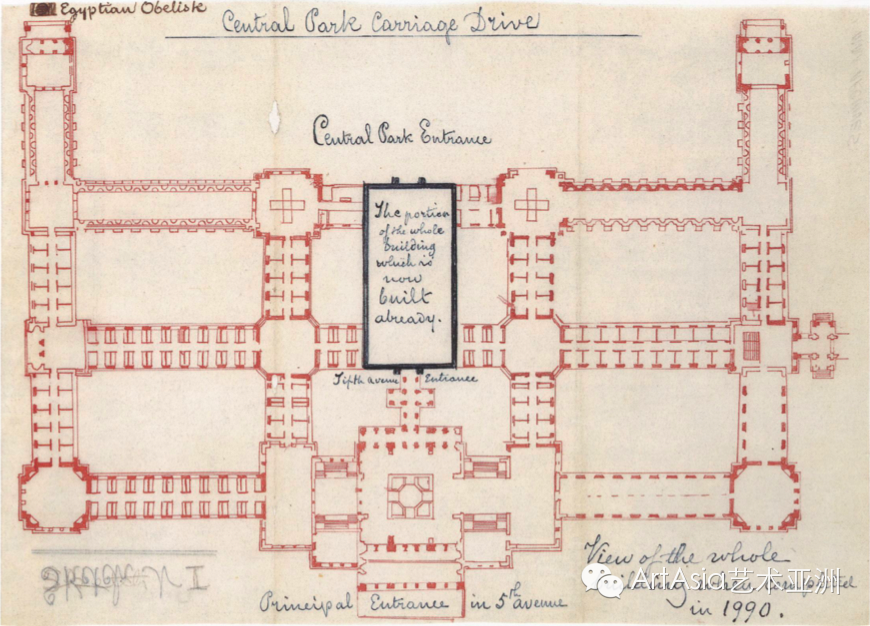 Egyptian Obelisk
Central Park Carriage Drive
Central Park Entrance
The portion
of the whole
building
which is
now
built
already.
Fifth avenue Entrance
View of the whole
when completed
in 1990.
ArtAsia艺术亚洲
Principal Entrance in 5th avenue